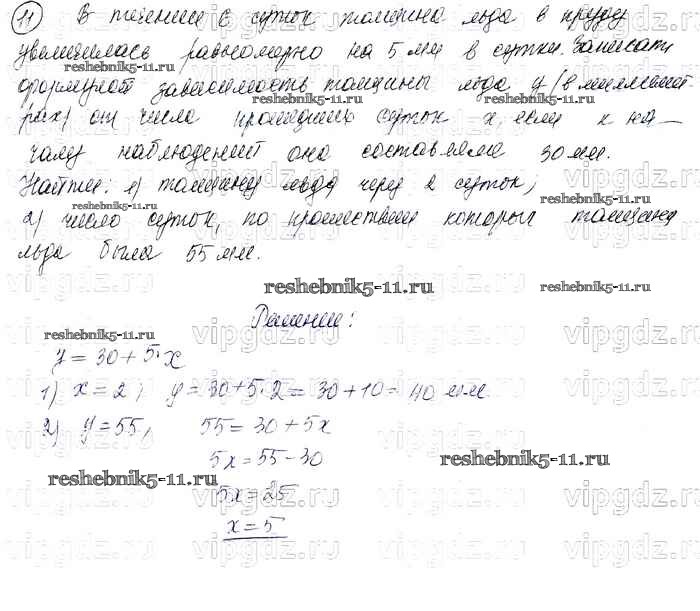 11 В течении 6 суток толщина льда в пруду
увеличилась равномерно на 5 мм в сутки. Записать
reshebnik5-11.ru reshebnik5-11.ru
формулой зависимость толщины льда y (в миллимет-
рах) от числа прошедших суток x, если к на-
чалу наблюдений она составляла 30 мм.
Найти: 1) толщину льда через 2 суток;
2) число суток, по прошествии которых толщина
льда была 55 мм.
reshebnik5-11.ru reshebnik5-11.ru
Решение:
reshebnik5-11.ru
y = 30 + 5·x
1) x = 2; y = 30 + 5·2 = 30 + 10 = 40 мм.
2) y = 55, 55 = 30 + 5x
5x = 55 - 30
reshebnik5-11.ru reshebnik5-11.ru
5x = 25
x = 5
vipgdz.ru